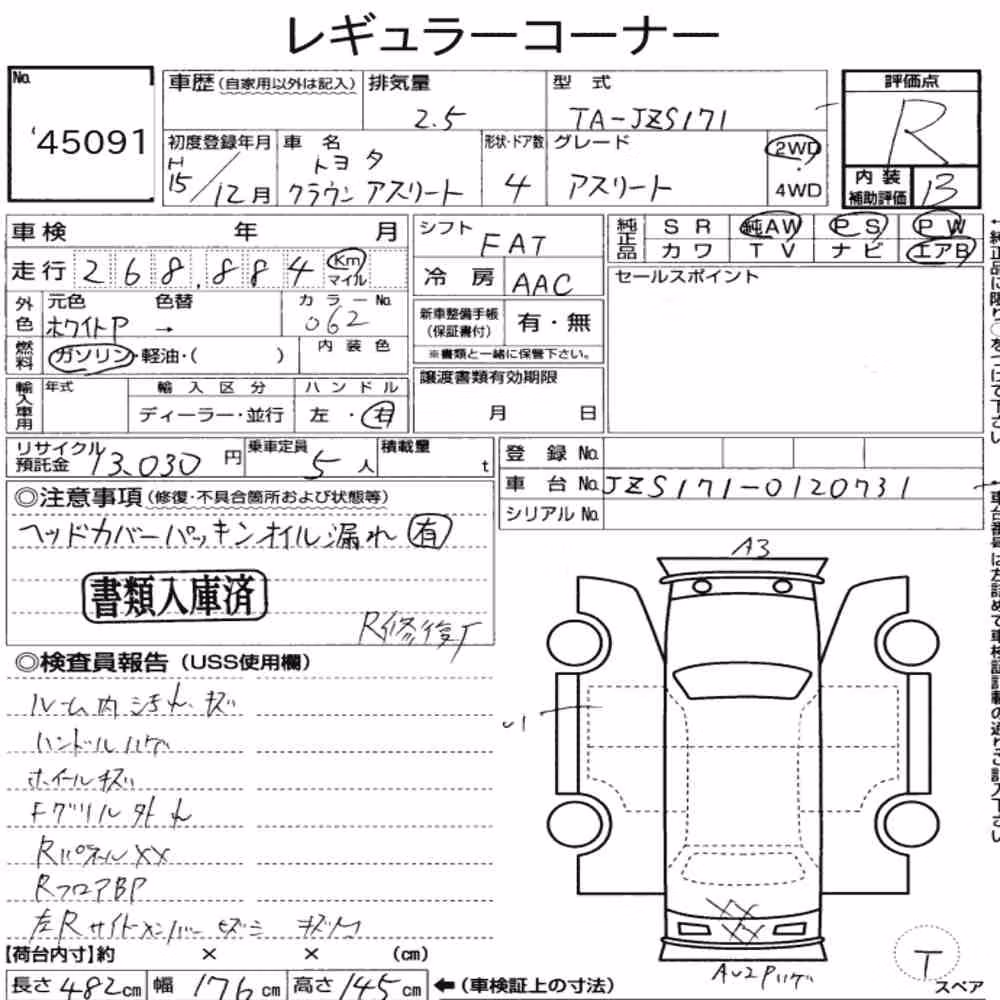 レギュラーコーナー
No.
'45091
車歴(自家用以外は記入)
排気量
2.5
型式
TA-JZS171
評価点
R
初度登録年月
H
15/12月
車名
トヨタ
クラウン アスリート
形状・ドア数
4
グレード
アスリート
2WD
4WD
内装
補助評価
B
車検 年 月
走行 268,884 Km
マイル
シフト
FAT
冷房 AAC
純正品
SR 純AW PS PW
カワ TV ナビ エアB
外色
元色 色替
ホワイトP →
カラーNo.
062
燃料
ガソリン・軽油・( )
内装色
新車整備手帳
(保証書付)
有・無
※書類と一緒に保管下さい。
セールスポイント
輸入車用
年式
輸入区分
ディーラー・並行
ハンドル
左・右
譲渡書類有効期限
月 日
リサイクル
預託金
13.030円
乗車定員
5人
積載量
t
登録No.
車台No. JZS171-0120731
シリアルNo.
◎注意事項(修復・不具合箇所および状態等)
ヘッドカバーパッキンオイル漏れ 有
書類入庫済
R修復
◎検査員報告(USS使用欄)
ルーム内
ハンドルハゲ
ホイールキズ
Fグリル外れ
RパネルXX
RフロアBP
左Rサイドメンバー
A3
U1
XX
XX
AU2Pハゲ
T
スペア
【荷台内寸】約 × × (cm)
長さ482cm 幅176cm 高さ145cm ←(車検証上の寸法)
←純正品に限り○をつけて下さい
←車台番号は左詰めで車検証記載の通りご記入下さい